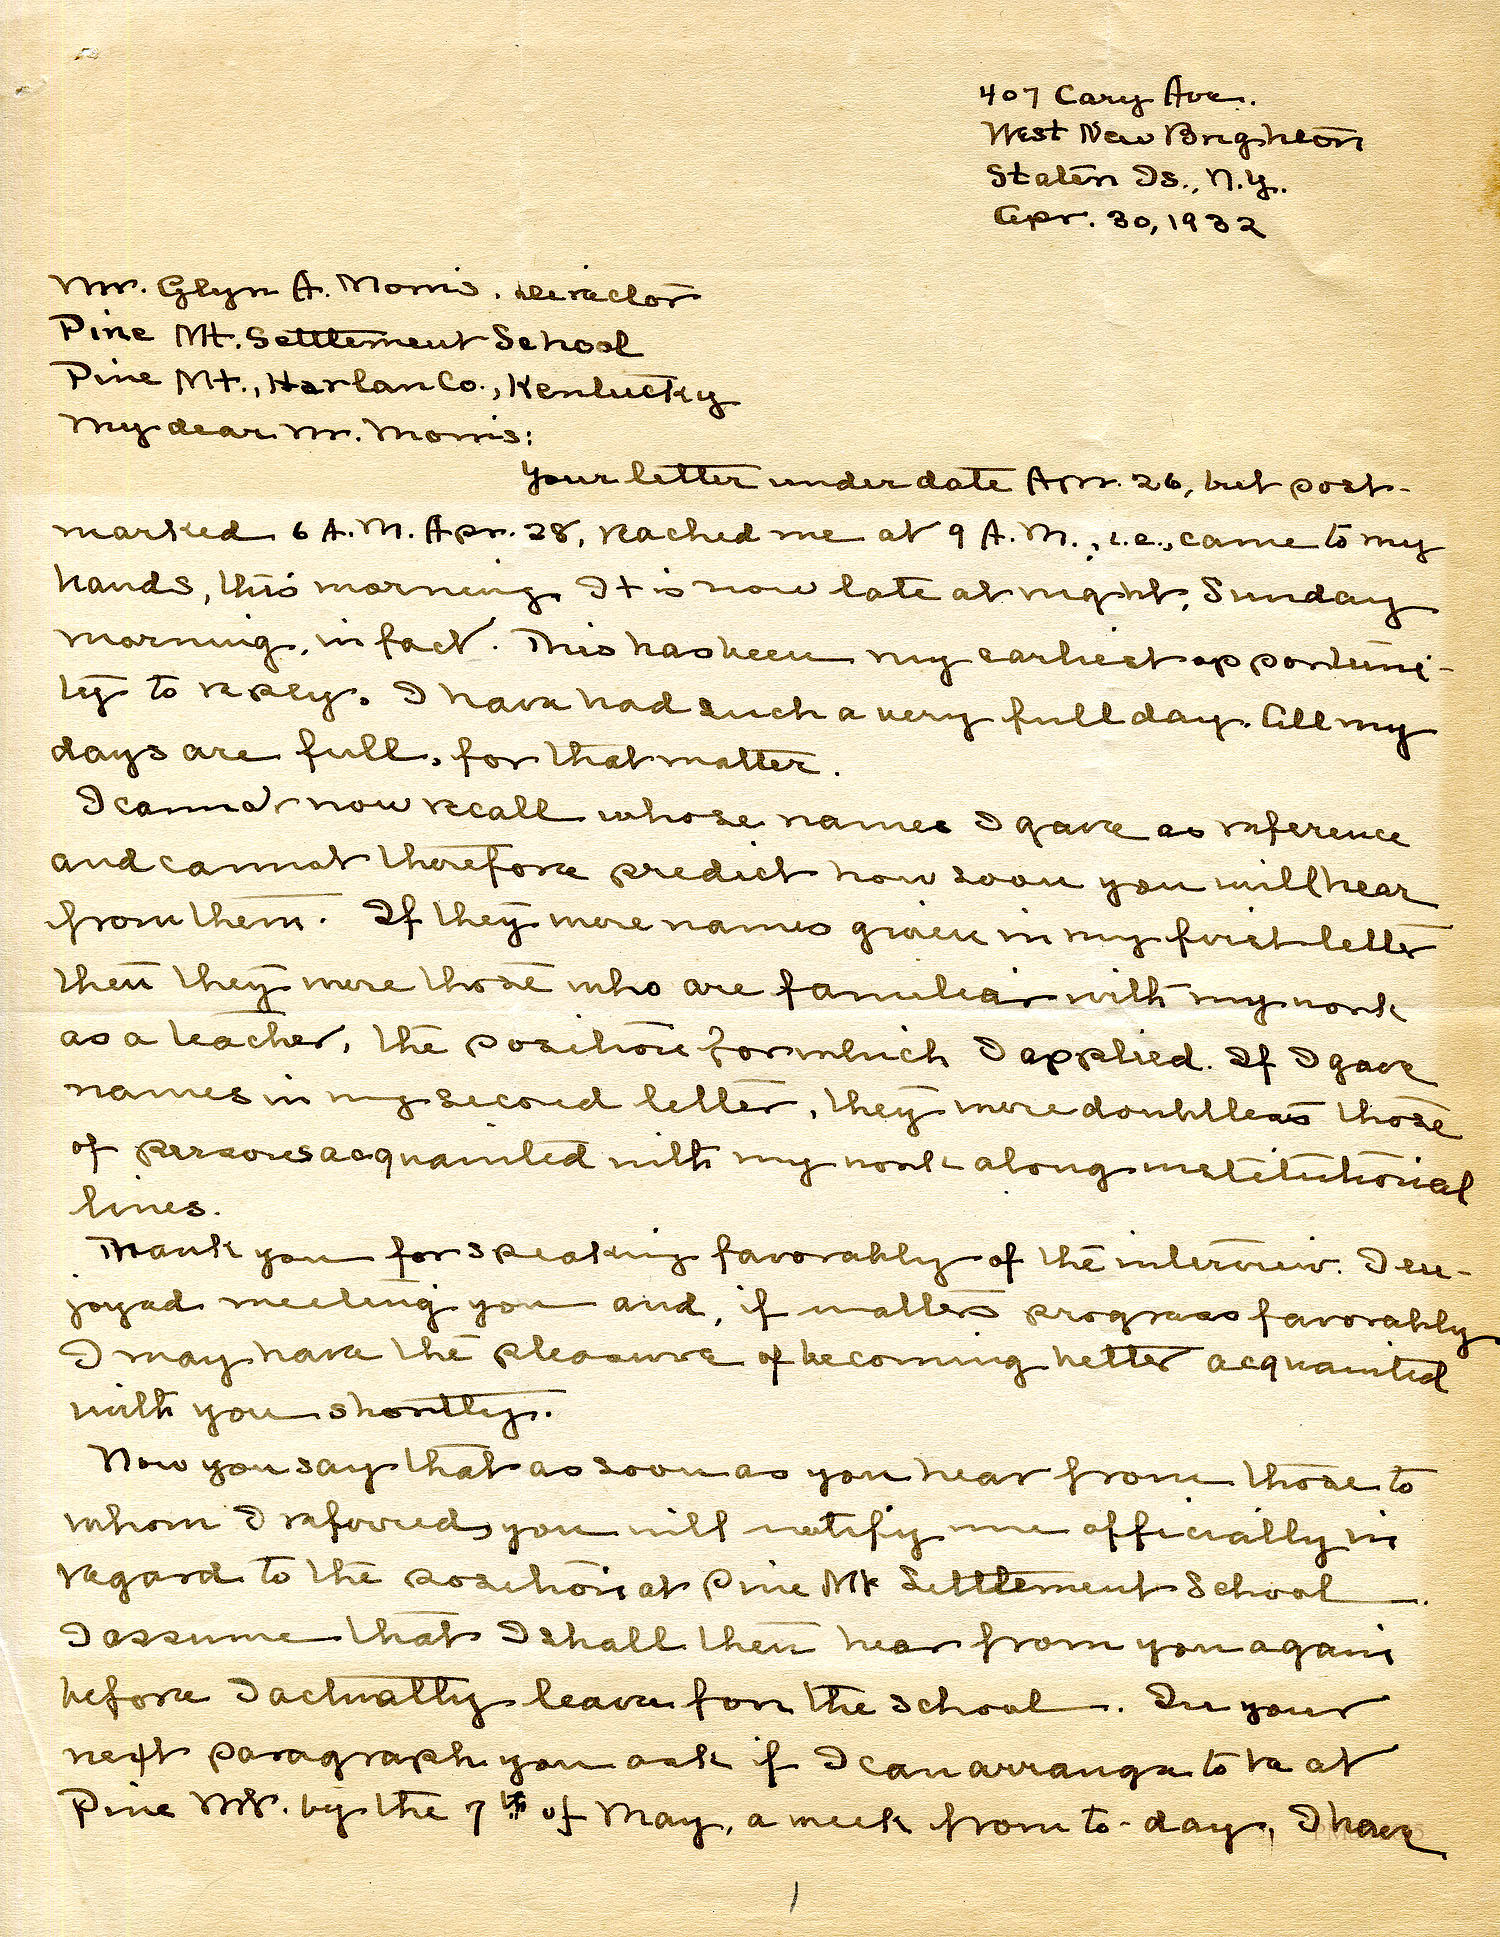 407 Cary Ave.
West New Brighton
Staten Is., N.Y.
Apr. 30, 1932
Mr. Glyn A. Morris, Director
Pine Mt. Settlement School
Pine Mt., Harlan Co., Kentucky
My dear Mr. Morris:
Your letter under date Apr. 26, but post-
marked 6 A.M. Apr. 28, reached me at 9 A.M., i.e., came to my
hands, this morning. It is now late at night, Sunday
morning, in fact. This has been my earliest opportuni-
ty to reply. I have had such a very full day. All my
days are full, for that matter.
I cannot now recall whose names I gave as reference
and cannot therefore predict how soon you will hear
from them. If they were names given in my first letter
then they were those who are familiar with my work
as a teacher, the position for which I applied. If I gave
names in my second letter, they were doubtless those
of persons acquainted with my work along institutional
lines.
Thank you for speaking favorably of the interview. I en-
joyed meeting you and, if matters progress favorably
I may have the pleasure of becoming better acquainted
with you shortly.
Now you say that as soon as you hear from those to
whom I referred, you will notify me officially in
regard to the position at Pine Mt Settlement School.
I assume that I shall then hear from you again
before I actually leave for the school. In your
next paragraph you ask if I can arrange to be at
Pine Mt. by the 7th of May, a week from to-day, I have
1